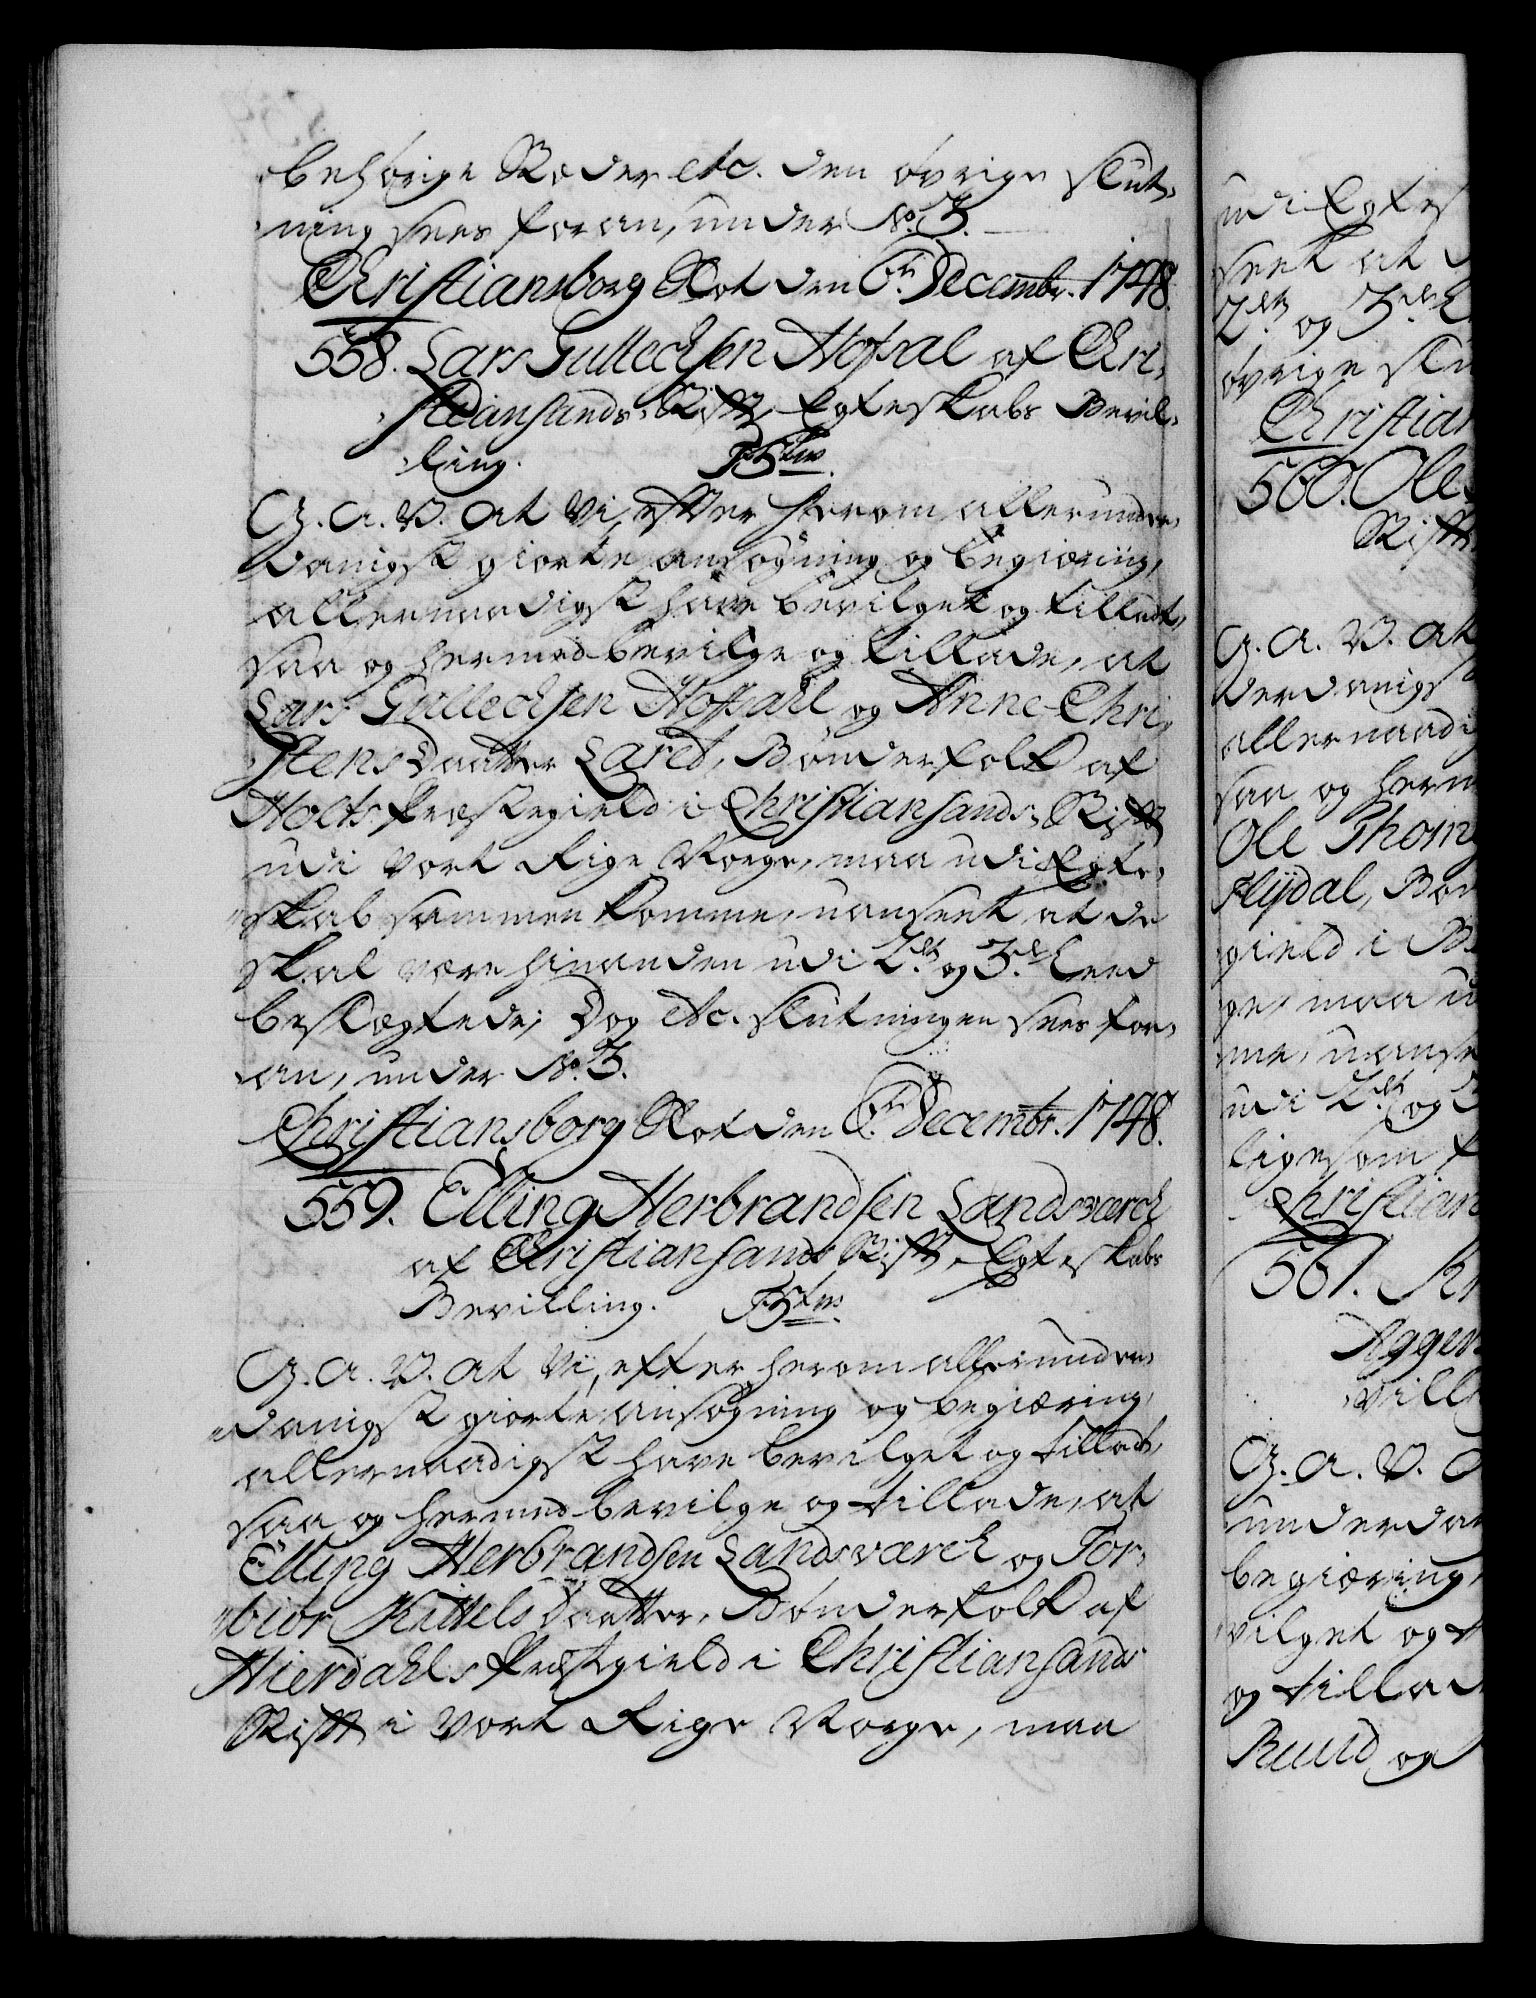 behørige Stæder etc. den øvrige Slut,
ning sees foran, under No. 3.
Christiansborg Slot den 6te Decembr. 1748.
558. Lars Gullechsen Hofsal af Chri,
stiansands Stift, Egteskabs Bevil,
ling.
G. A. V. at Vi, efter herom allerunder,
danigst giorte ansøgning og begiæring,
allernaadigst have bevilget og tilladt,
saa og hermed bevilge og tillade, at
Lars Gullechsen Hofsahl og Anne Chri,
stensdaatter Laret, Bønderfolk af
Holts Præstegield i Christiansands Stift
udi Vort Rige Norge, maa udi Egte,
skab sammen komme, uanseet at de
skal være hinanden udi 2det og 3die Leed
beslægtede; Dog etc. Slutningen sees for,
an, under No. 3.
Christiansborg Slot den 6te Decembr. 1748.
559. Elling Herbrandsen Landsværck
af Christiansands Stift, Egteskabs
Bevilling.
G. A. V. at Vi, efter herom allerunder,
danigst giorte ansøgning og begiæring,
allernaadigst have bevilget og tilladt,
saa og hermed bevilge og tillade, at
Elling Herbrandsen Landsværck og Tor,
biør Kittelsdaatter, Bønderfolk af
Hierdahls Præstegield i Christiansands
Stift i Vort Rige Norge, maa
udi Egtes
seet at
2det og 3die
øvrige Slu
Christian
560. Ole
Stift
G. A. V. at
derdanigst
allernaadi
saa og herm
Ole Thom
Flydal, Bøn
gield i
ge, maa u
me, uanse
udi 2det og 3
ligesom f
Christian
561.
Agger
vill
G. A. V.
underdan
begiæring,
vilget og t
og tillad
Ruud og